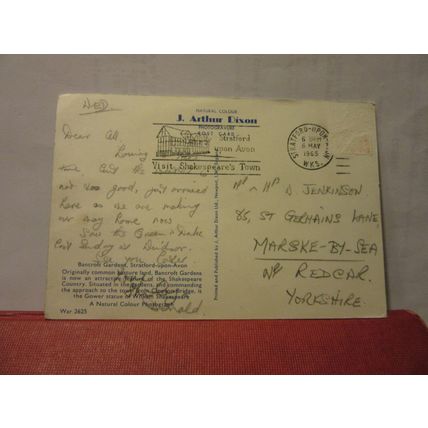 WED.
NATURAL COLOUR
J. Arthur Dixon
PHOTOGRAVURE
POST CARD
Stratford
upon Avon
Visit Shakespeare's Town
STRATFORD-UPON-AVON
6 PM
6 MAY
1965
WKS.
Dear All,
Having
time but the
not too good, just arrived
here as we are making
our way home now
Saw the Queen & Duke
last Sunday at Windsor.
See you later.
Donald
D. JENKINSON
85, ST GERMAINS LANE,
MARSKE-BY-SEA
NR REDCAR.
YORKSHIRE.
Printed and Published by J. Arthur Dixon Ltd., Newport,
Bancroft Gardens, Stratford-upon-Avon
Originally common pasture land, Bancroft Gardens
is now an attractive feature of the Shakespeare
Country. Situated in the gardens, and commanding
the approach to the town from Clopton Bridge, is
the Gower statue of William Shakespeare
A Natural Colour Photograph
War 2625